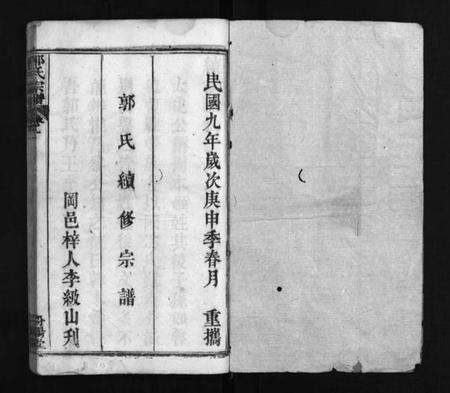 民國九年歲次庚申季春月 重攜
郭氏續修宗譜
岡邑梓人李級山刋
郭氏宗譜